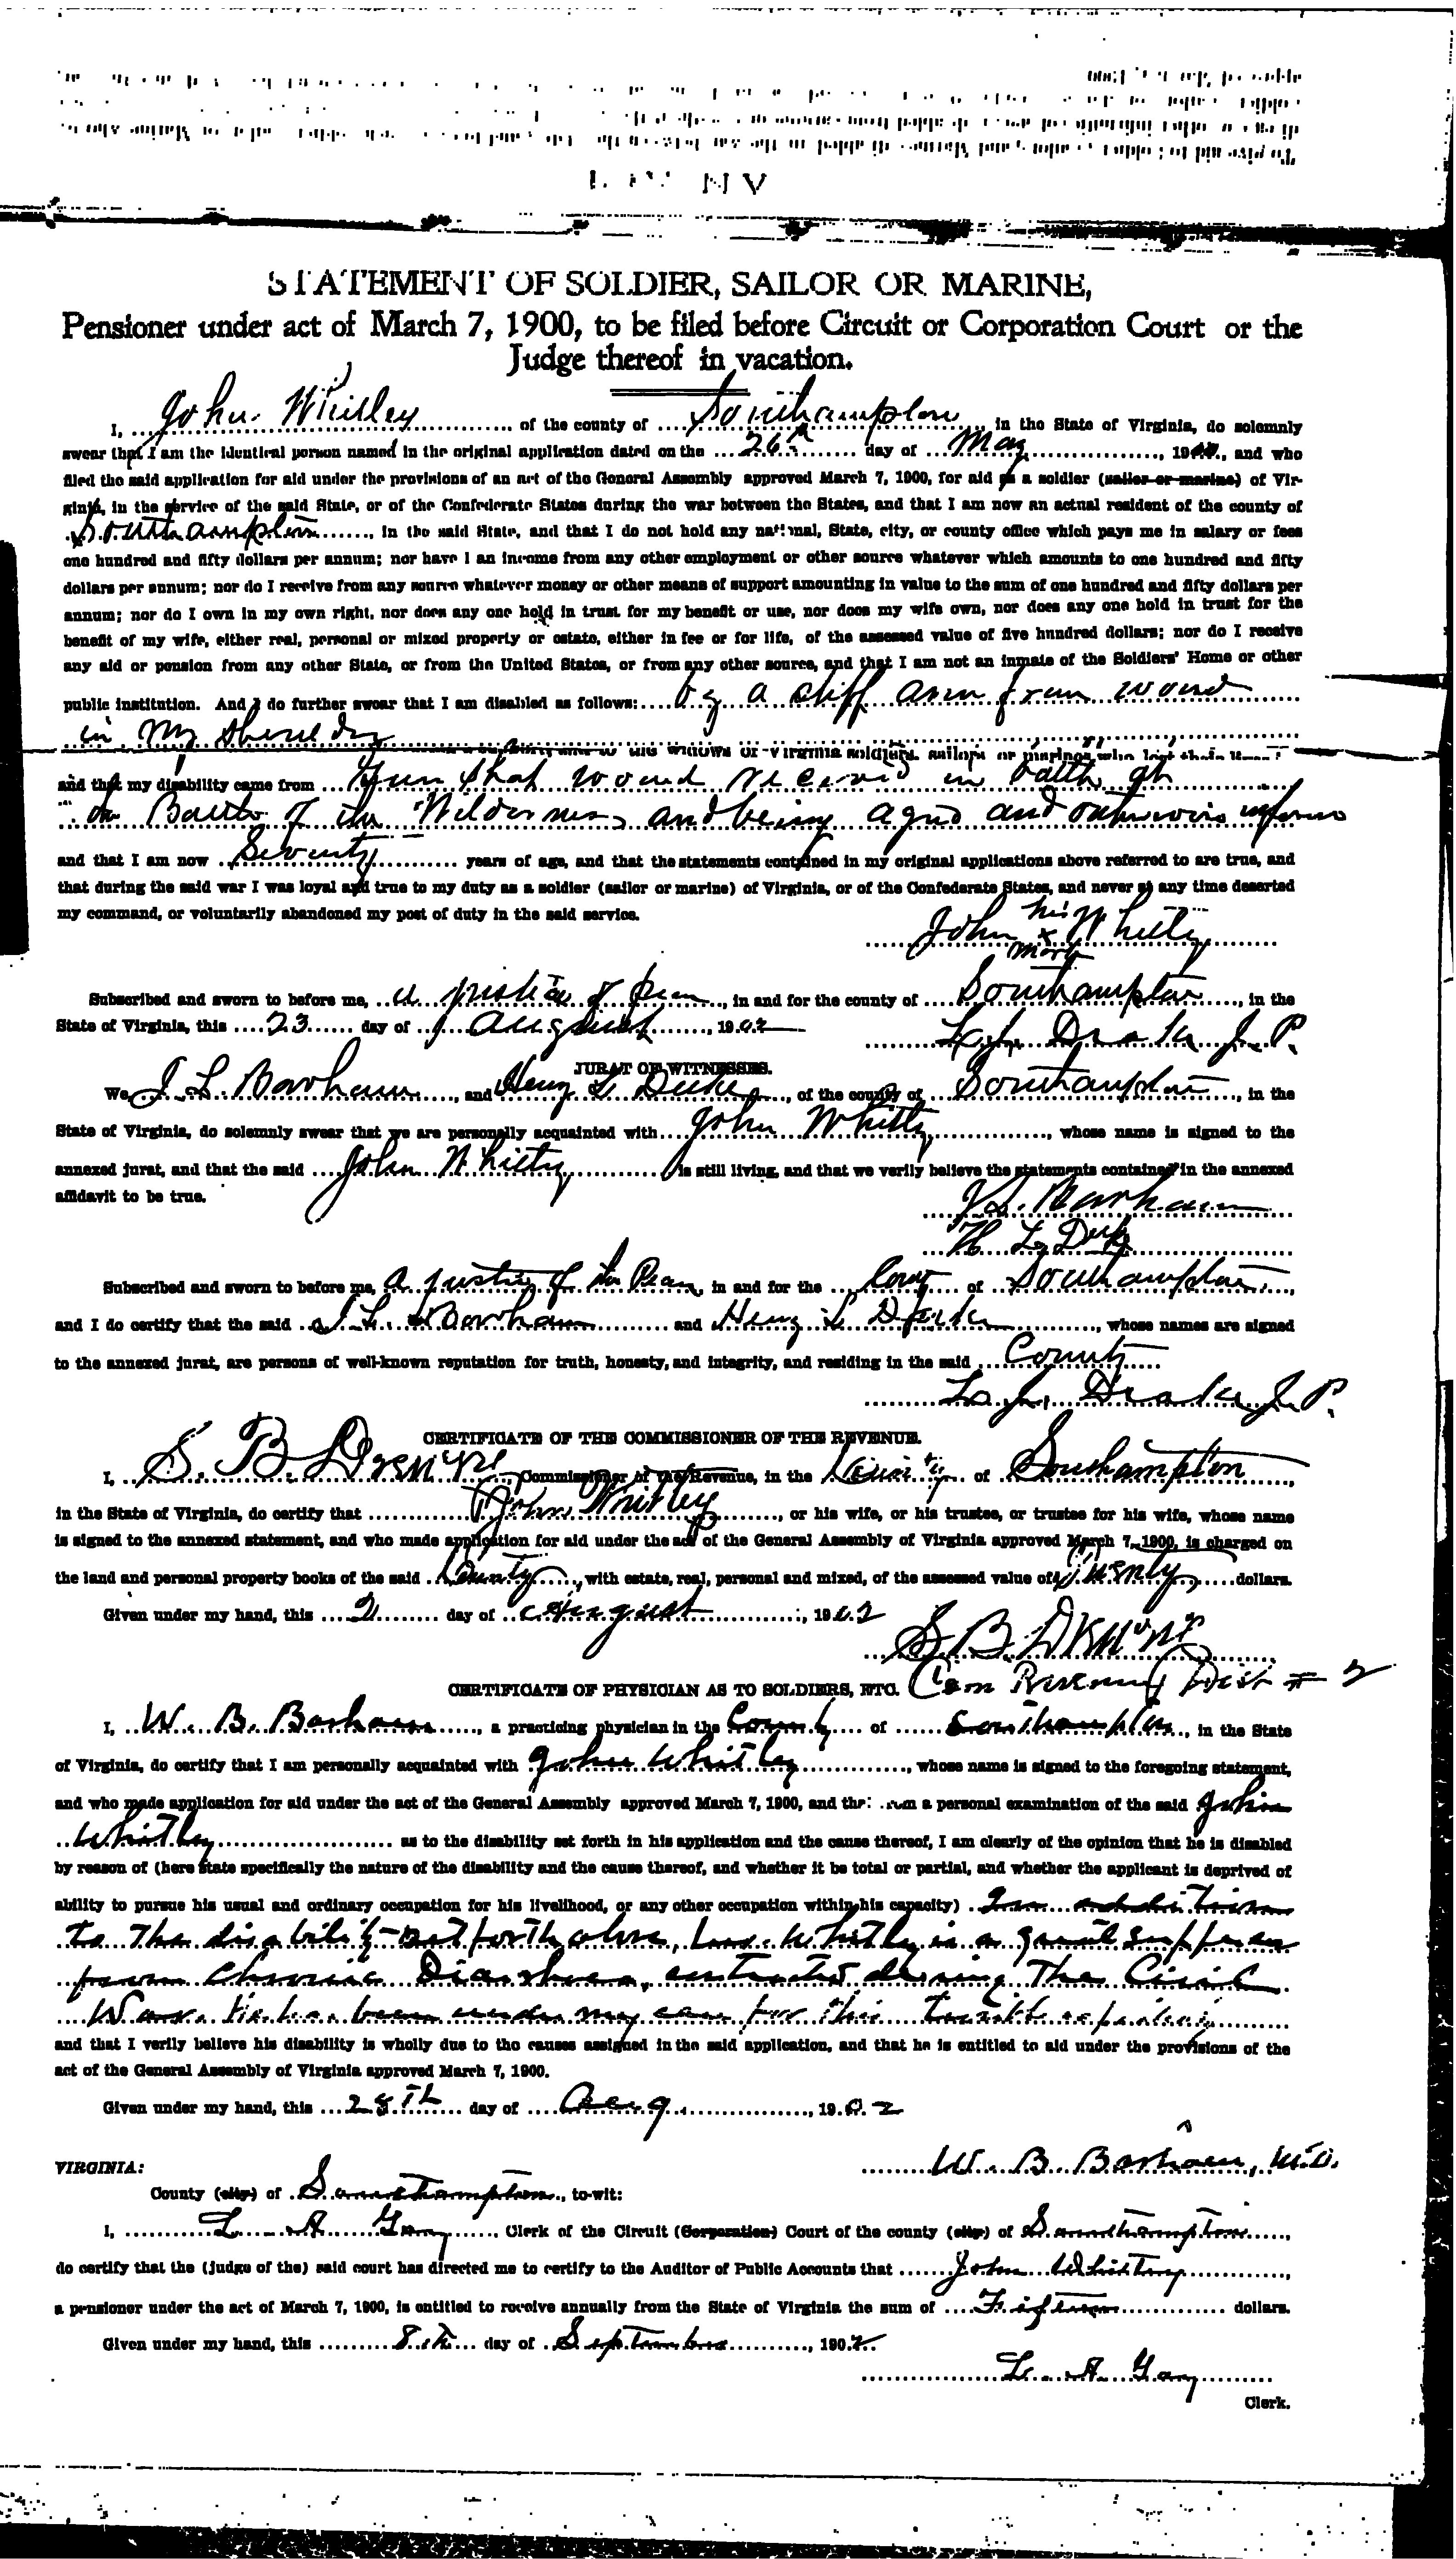 STATEMENT OF SOLDIER, SAILOR OR MARINE,
Pensioner under act of March 7, 1900, to be filed before Circuit or Corporation Court or the
Judge thereof in vacation.
I, John Whitley of the county of Southampton in the State of Virginia, do solemnly
swear that I am the identical person named in the original application dated on the 26th day of May, 19, and who
filed the said application for aid under the provisions of an act of the General Assembly approved March 7, 1900, for aid as a soldier (sailor or marine) of Vir-
ginia, in the service of the said State, or of the Confederate States during the war between the States, and that I am now an actual resident of the county of
Southampton, in the said State, and that I do not hold any national, State, city, or county office which pays me in salary or fees
one hundred and fifty dollars per annum; nor have I an income from any other employment or other source whatever which amounts to one hundred and fifty
dollars per annum; nor do I receive from any source whatever money or other means of support amounting in value to the sum of one hundred and fifty dollars per
annum; nor do I own in my own right, nor does any one hold in trust for my benefit or use, nor does my wife own, nor does any one hold in trust for the
benefit of my wife, either real, personal or mixed property or estate, either in fee or for life, of the assessed value of five hundred dollars; nor do I receive
any aid or pension from any other State, or from the United States, or from any other source, and that I am not an inmate of the Soldiers' Home or other
public institution. And I do further swear that I am disabled as follows: by a stiff arm from wound
in my
and that my disability came from Gun shot wound received in battle at
the Battle of the Wilderness and being aged and
and that I am now Seventy years of age, and that the statements contained in my original applications above referred to are true, and
that during the said war I was loyal and true to my duty as a soldier (sailor or marine) of Virginia, or of the Confederate States, and never at any time deserted
my command, or voluntarily abandoned my post of duty in the said service.
John his x mark Whitly
Subscribed and sworn to before me, a justice of peace, in and for the county of Southampton, in the
State of Virginia, this 23 day of August, 1902
L. J. Drake J. P.
JURAT OF WITNESSES.
We J. L. Barham, and Henry L Duke, of the county of Southampton, in the
State of Virginia, do solemnly swear that we are personally acquainted with John Whitly, whose name is signed to the
annexed jurat, and that the said John Whitly is still living, and that we verily believe the statements contained in the annexed
affidavit to be true.
J. L. Barham
H L Duke
Subscribed and sworn to before me, a justice of the Peace, in and for the County of Southampton,
and I do certify that the said J. L. Barham and Henry L Duke, whose names are signed
to the annexed jurat, are persons of well-known reputation for truth, honesty, and integrity, and residing in the said County
L. J. Drake J. P.
CERTIFICATE OF THE COMMISSIONER OF THE REVENUE.
I, S. B. Commissioner of the Revenue, in the County of Southampton,
in the State of Virginia, do certify that John Whitley, or his wife, or his trustee, or trustee for his wife, whose name
is signed to the annexed statement, and who made application for aid under the act of the General Assembly of Virginia approved March 7, 1900, is charged on
the land and personal property books of the said County, with estate, real, personal and mixed, of the assessed value of Twenty dollars.
Given under my hand, this 2 day of August, 1902
S. B.
Com Revenue Dist # 2
CERTIFICATE OF PHYSICIAN AS TO SOLDIERS, ETC.
I, W. B. Barham, a practicing physician in the County of Southampton, in the State
of Virginia, do certify that I am personally acquainted with John Whitley, whose name is signed to the foregoing statement,
and who made application for aid under the act of the General Assembly approved March 7, 1900, and that from a personal examination of the said John
Whitley as to the disability set forth in his application and the cause thereof, I am clearly of the opinion that he is disabled
by reason of (here state specifically the nature of the disability and the cause thereof, and whether it be total or partial, and whether the applicant is deprived of
ability to pursue his usual and ordinary occupation for his livelihood, or any other occupation within his capacity) In addition
to the disability set forth above, Whitley is a great sufferer
from Chronic Diarrhoea, contracted during The Civil
War. He has been under my care for this
and that I verily believe his disability is wholly due to the causes assigned in the said application, and that he is entitled to aid under the provisions of the
act of the General Assembly of Virginia approved March 7, 1900.
Given under my hand, this 28Th day of Aug, 1902
W. B. Barham, M.D.
VIRGINIA:
County (city) of Southampton, to-wit:
I, L A Gay, Clerk of the Circuit (Corporation) Court of the county (city) of Southampton,
do certify that the (judge of the) said court has directed me to certify to the Auditor of Public Accounts that John Whitley,
a pensioner under the act of March 7, 1900, is entitled to receive annually from the State of Virginia the sum of Fifteen dollars.
Given under my hand, this 8th day of September, 1902.
L. A. Gay
Clerk.